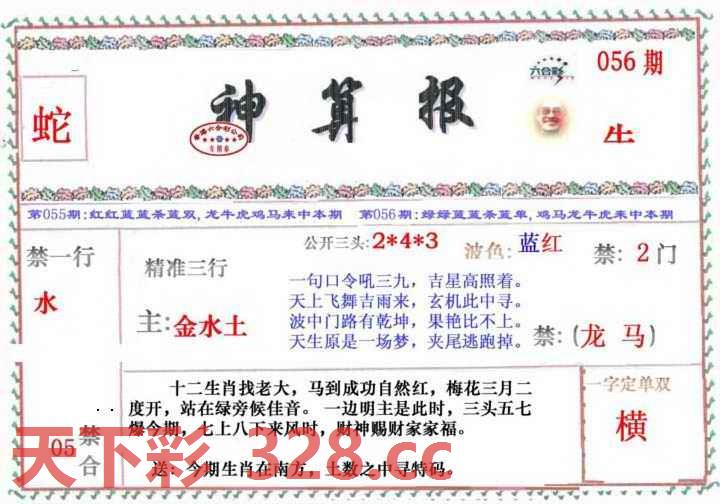 056期
六合彩
蛇
神算报
香港六合彩公司
专用章
牛
第055期:红红蓝蓝条蓝双,龙牛虎鸡马来中本期 第056期:绿绿蓝蓝条蓝单,鸡马龙牛虎来中本期
禁一行
水
精准三行
主:金水土
公开三头:2*4*3 波色:蓝红 禁:2门
一句口令吼三九，吉星高照着。
天上飞舞吉雨来，玄机此中寻。
波中门路有乾坤，果艳比不上。
天生原是一场梦，夹尾逃跑掉。
禁:(龙 马)
十二生肖找老大，马到成功自然红，梅花三月二
度开，站在绿旁候佳音。一边明主是此时，三头五七
爆今期，七上八下来风时，财神赐财家家福。
送：今期生肖在南方，土数之中寻特码。
一字定单双
横
05
禁
合
天下彩 328.cc